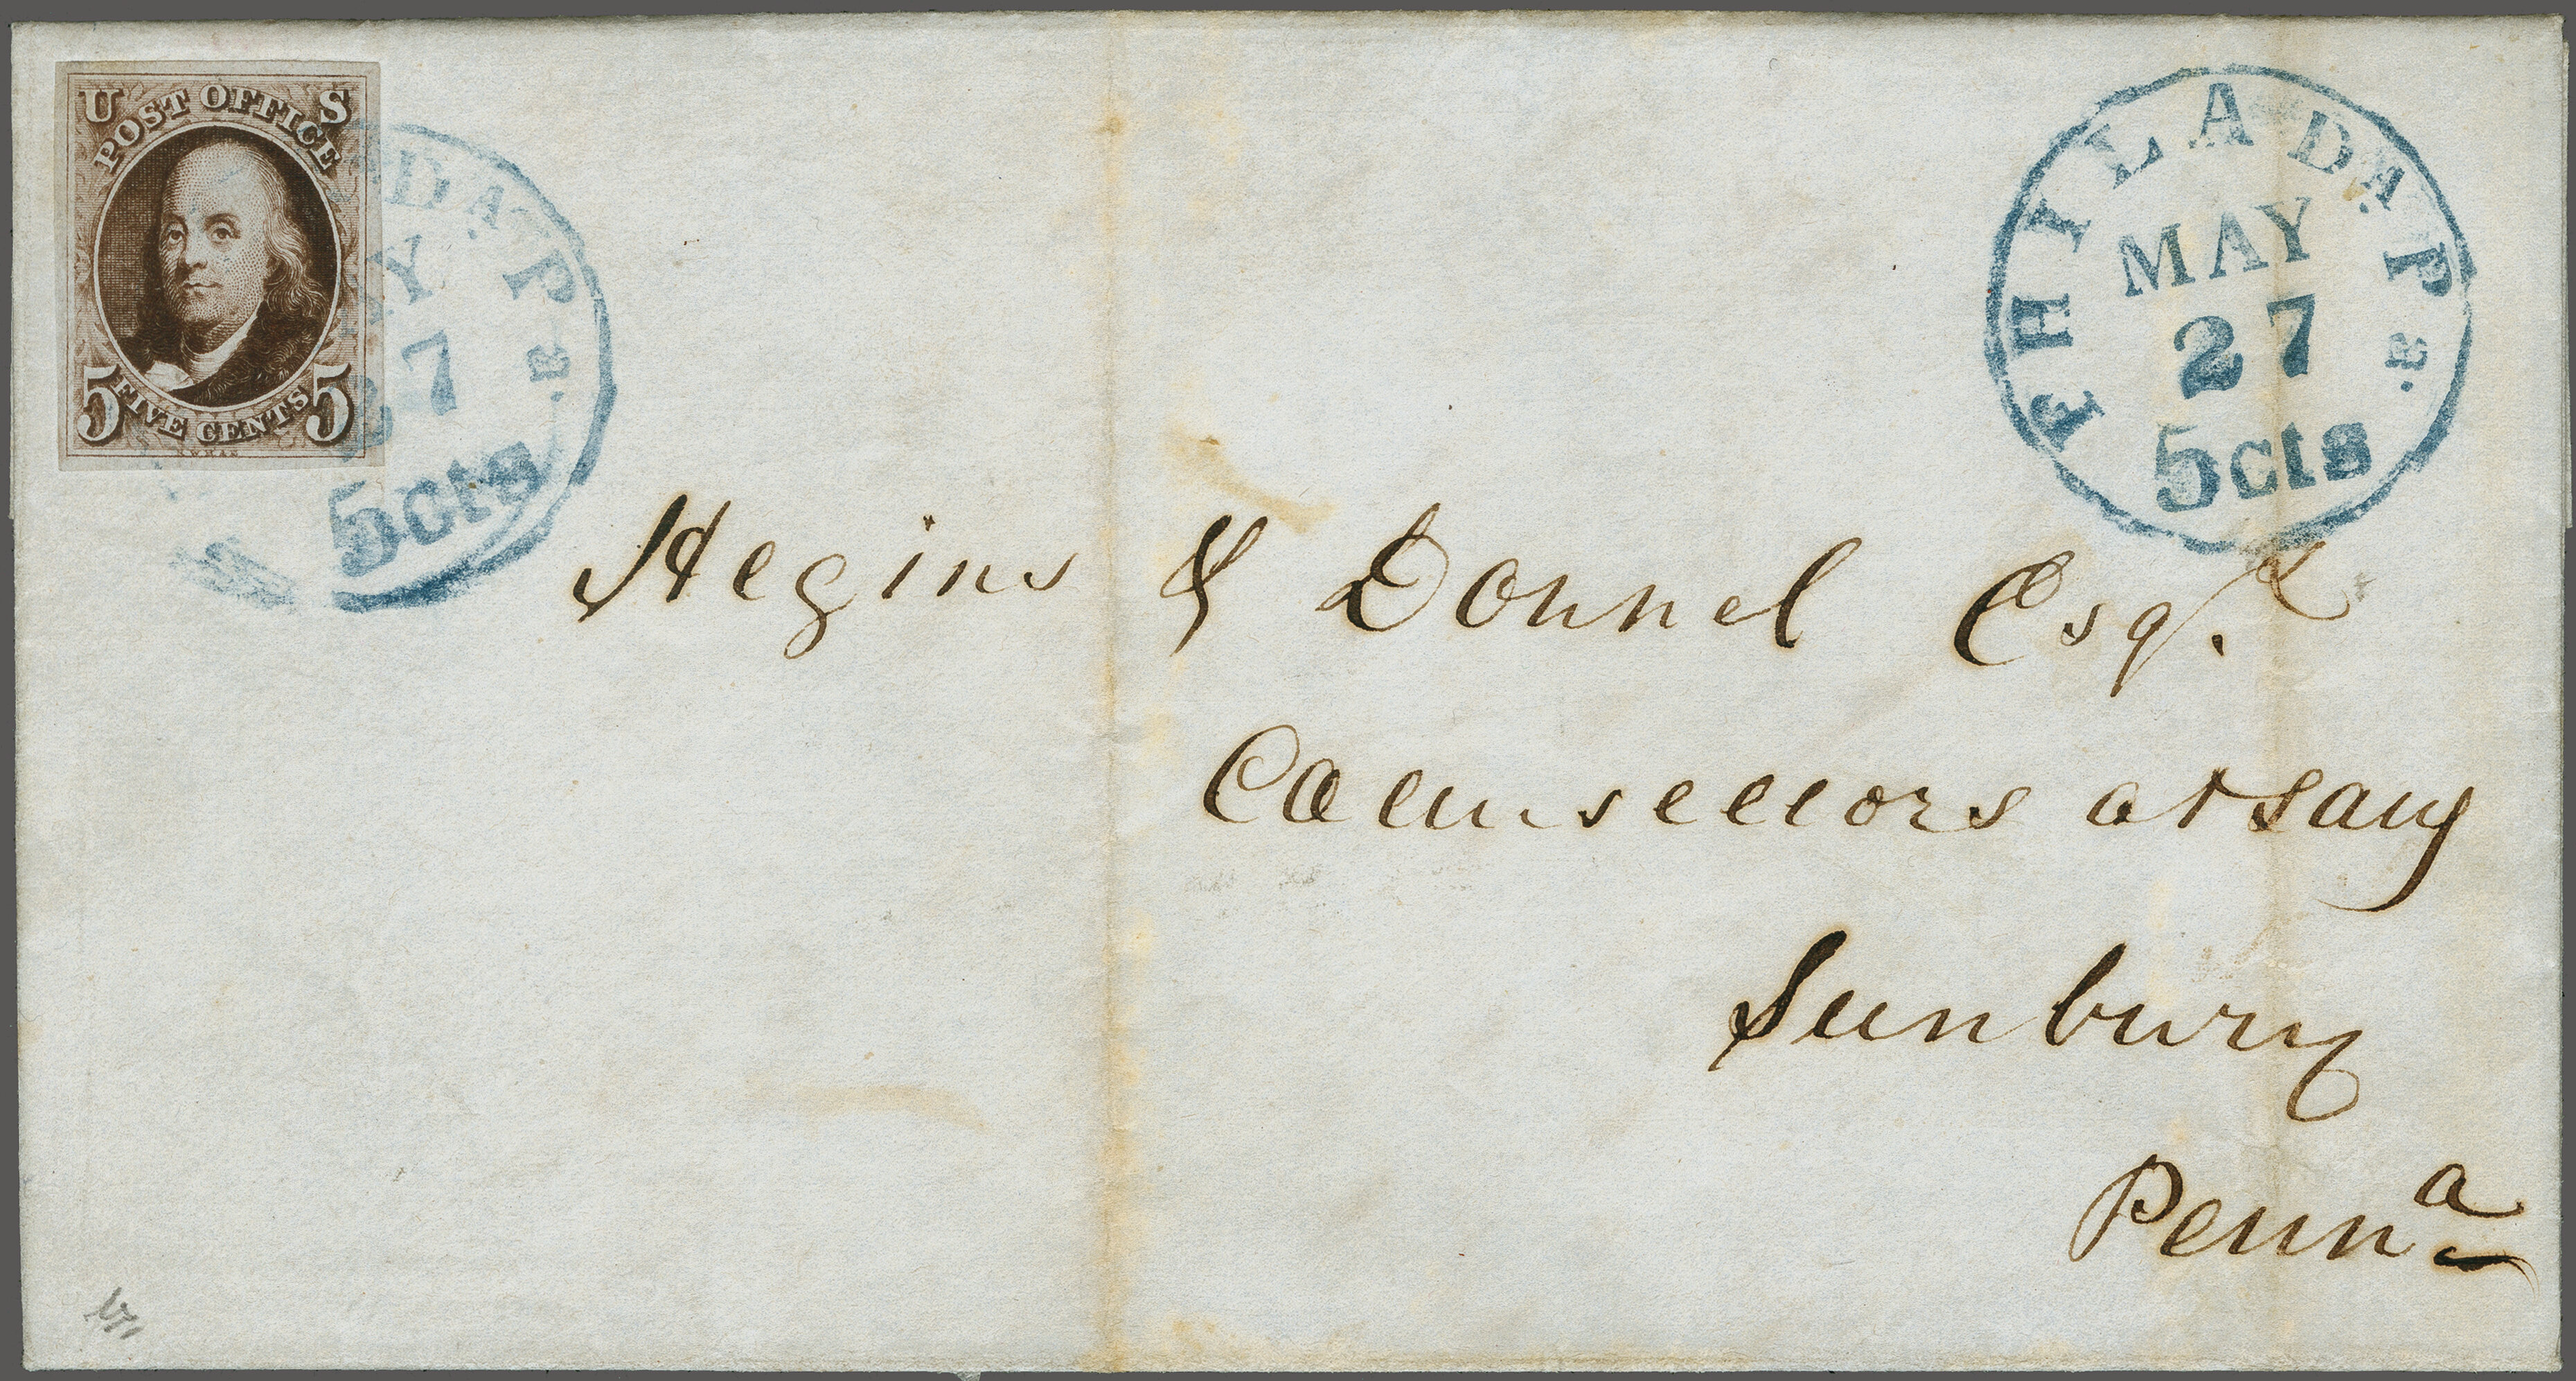 U S
POST OFFICE
5 FIVE CENTS 5
DA. Pa.
27
5cts
PHILADA. Pa.
MAY
27
5cts
Hegins & Donnel Esqs.
Counsellors at Law
Sunbury
Penna